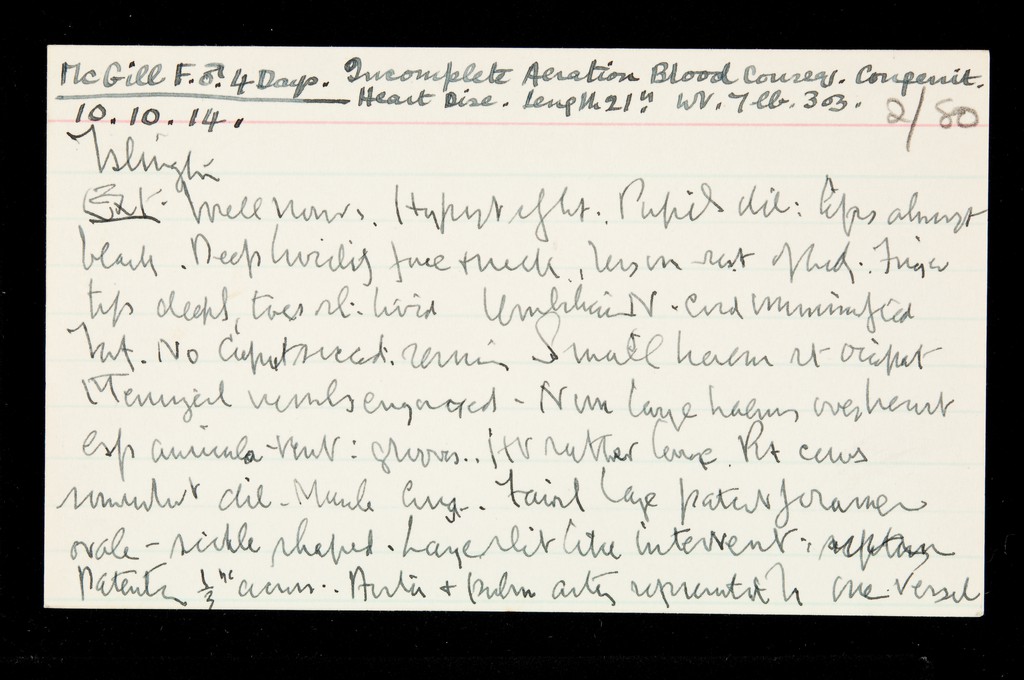 McGill F. ♂. 4 Days. Incomplete Aeration Blood Courses. Congenit.
Heart Dise. Length 21" Wt. 7 lb. 3 oz. 2/80
10.10.14.
Islington
Ext. Well nour. Pupils dil: Lips almost
black. Deep lividity face + neck, less on rest of body. Finger
tips deeply, toes sl: livid Umbilicus N. Cord mummified
Int. No Caput succed. Small haem at occiput
Meningeal vessels engorged - Num large haems over heart
esp auriculo-vent: grooves. Ht rather large. Rt cavs
somewhat dil - Muscle Cong. Fairly large patent foramen
ovale - sickle shaped. Large slit like intervent: septum
Patent 1/3" across. Aorta + pulm artery represented by one vessel